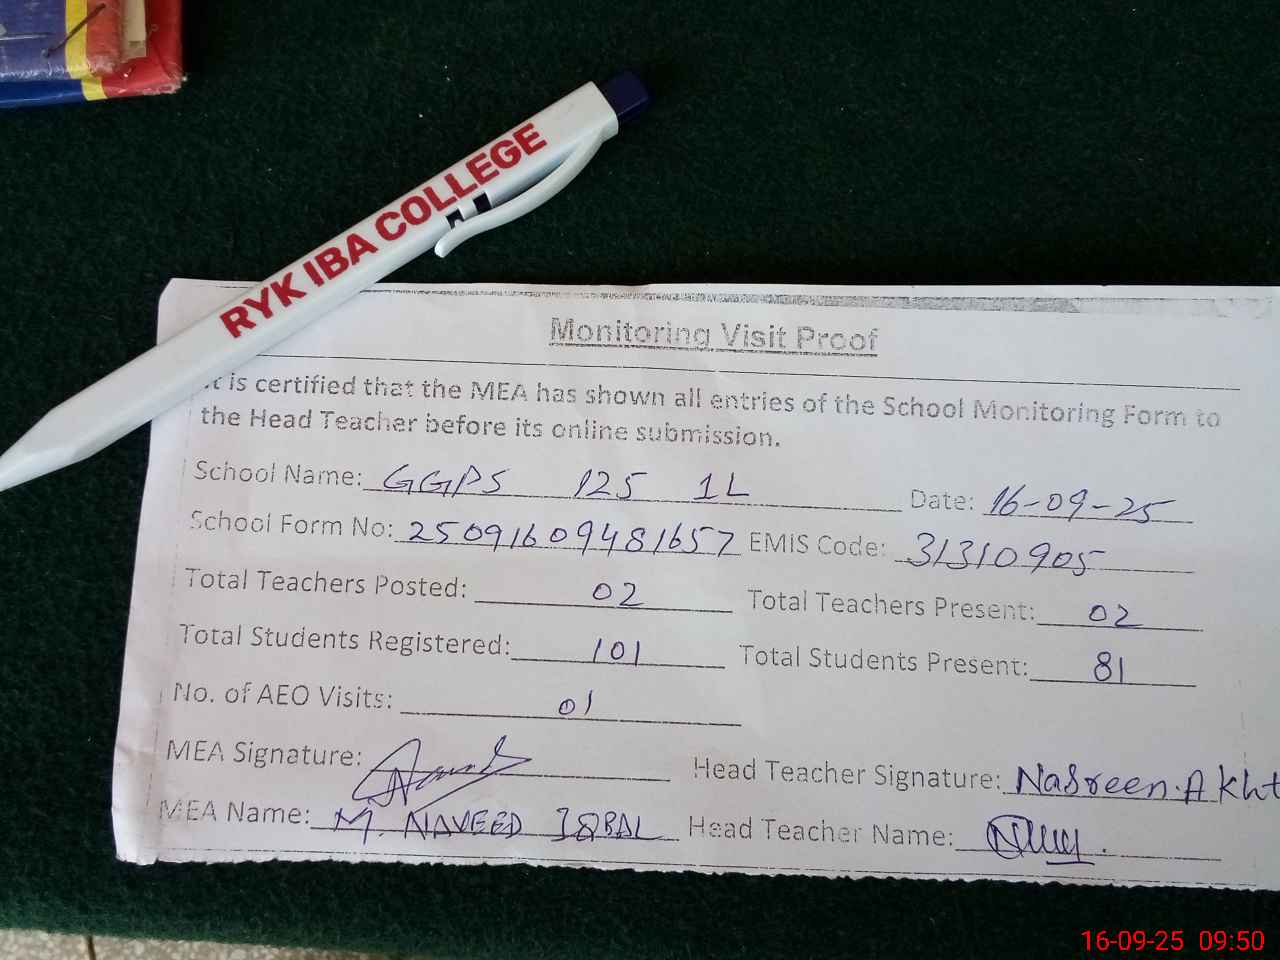 RYK IBA COLLEGE
Monitoring Visit Proof
t is certified that the MEA has shown all entries of the School Monitoring Form to
the Head Teacher before its online submission.
School Name: GGPS 125 1L Date: 16-09-25
School Form No: 25091609481657 EMIS Code: 31310905
Total Teachers Posted: 02 Total Teachers Present: 02
Total Students Registered: 101 Total Students Present: 81
No. of AEO Visits: 01
MEA Signature: Head Teacher Signature: Nasreen.Akht
MEA Name: M. NAVEED IQBAL Head Teacher Name:
16-09-25 09:50